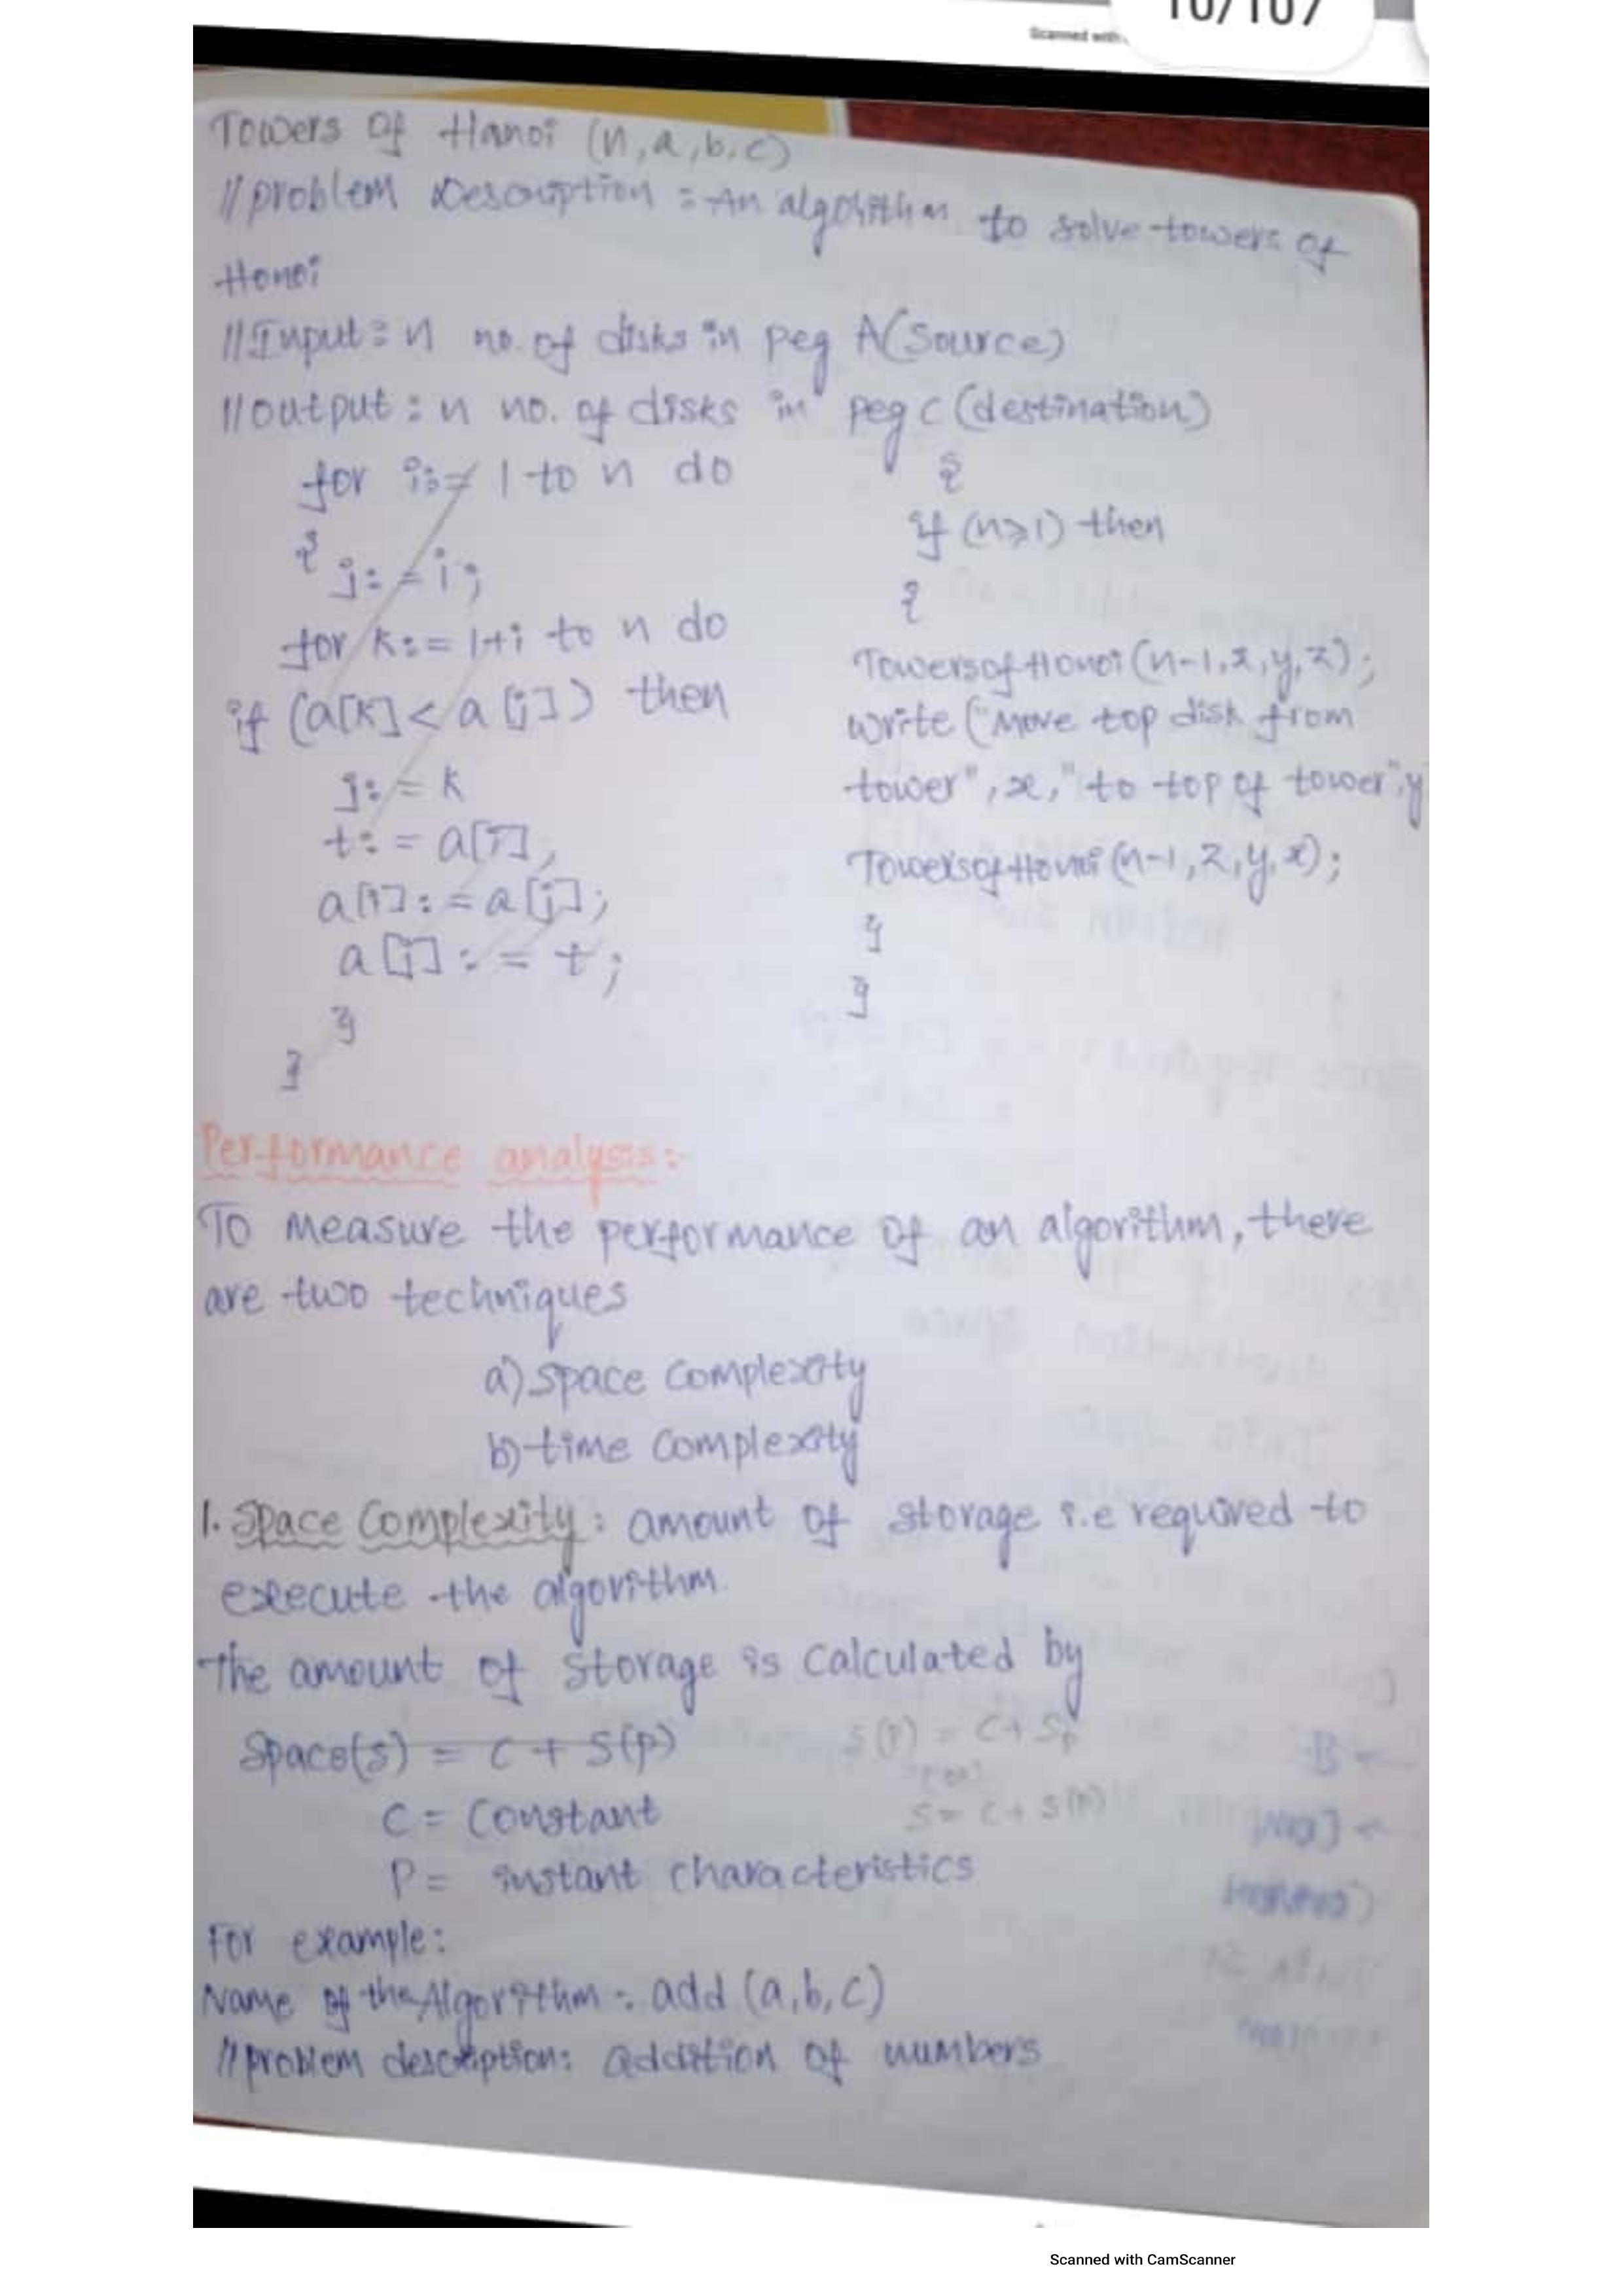 10/107
Scanned with
Towers Of Hanoi (n,a,b,c)
//problem Description : An algorithm to solve towers of
Hanoi
//Input : n no. of disks in peg A(Source)
//output : n no. of disks in peg c (destination)
for i:= 1 to n do
{
j:= i;
for k:= 1+i to n do
if (a[k] < a[j]) then
j:= k
t:= a[i];
a[i]:= a[j];
a[j]:= t;
}
}
{
if (n≥1) then
{
TowersofHanoi(n-1,x,y,z);
write ("Move top disk from
tower", x, "to top of tower",y
TowersofHanoi(n-1,z,y,x);
}
}
Performance analysis:-
To measure the performance of an algorithm, there
are two techniques
a) space complexity
b) time complexity
1. Space Complexity: amount of storage i.e required to
execute the algorithm.
The amount of storage is calculated by
Space(s) = C + S(p)
S(P) = C + Sp
(or)
S = C + S(P)
C = Constant
P = instant characteristics
For example:
Name of the Algorithm : add (a,b,c)
//problem description: addition of numbers
Scanned with CamScanner